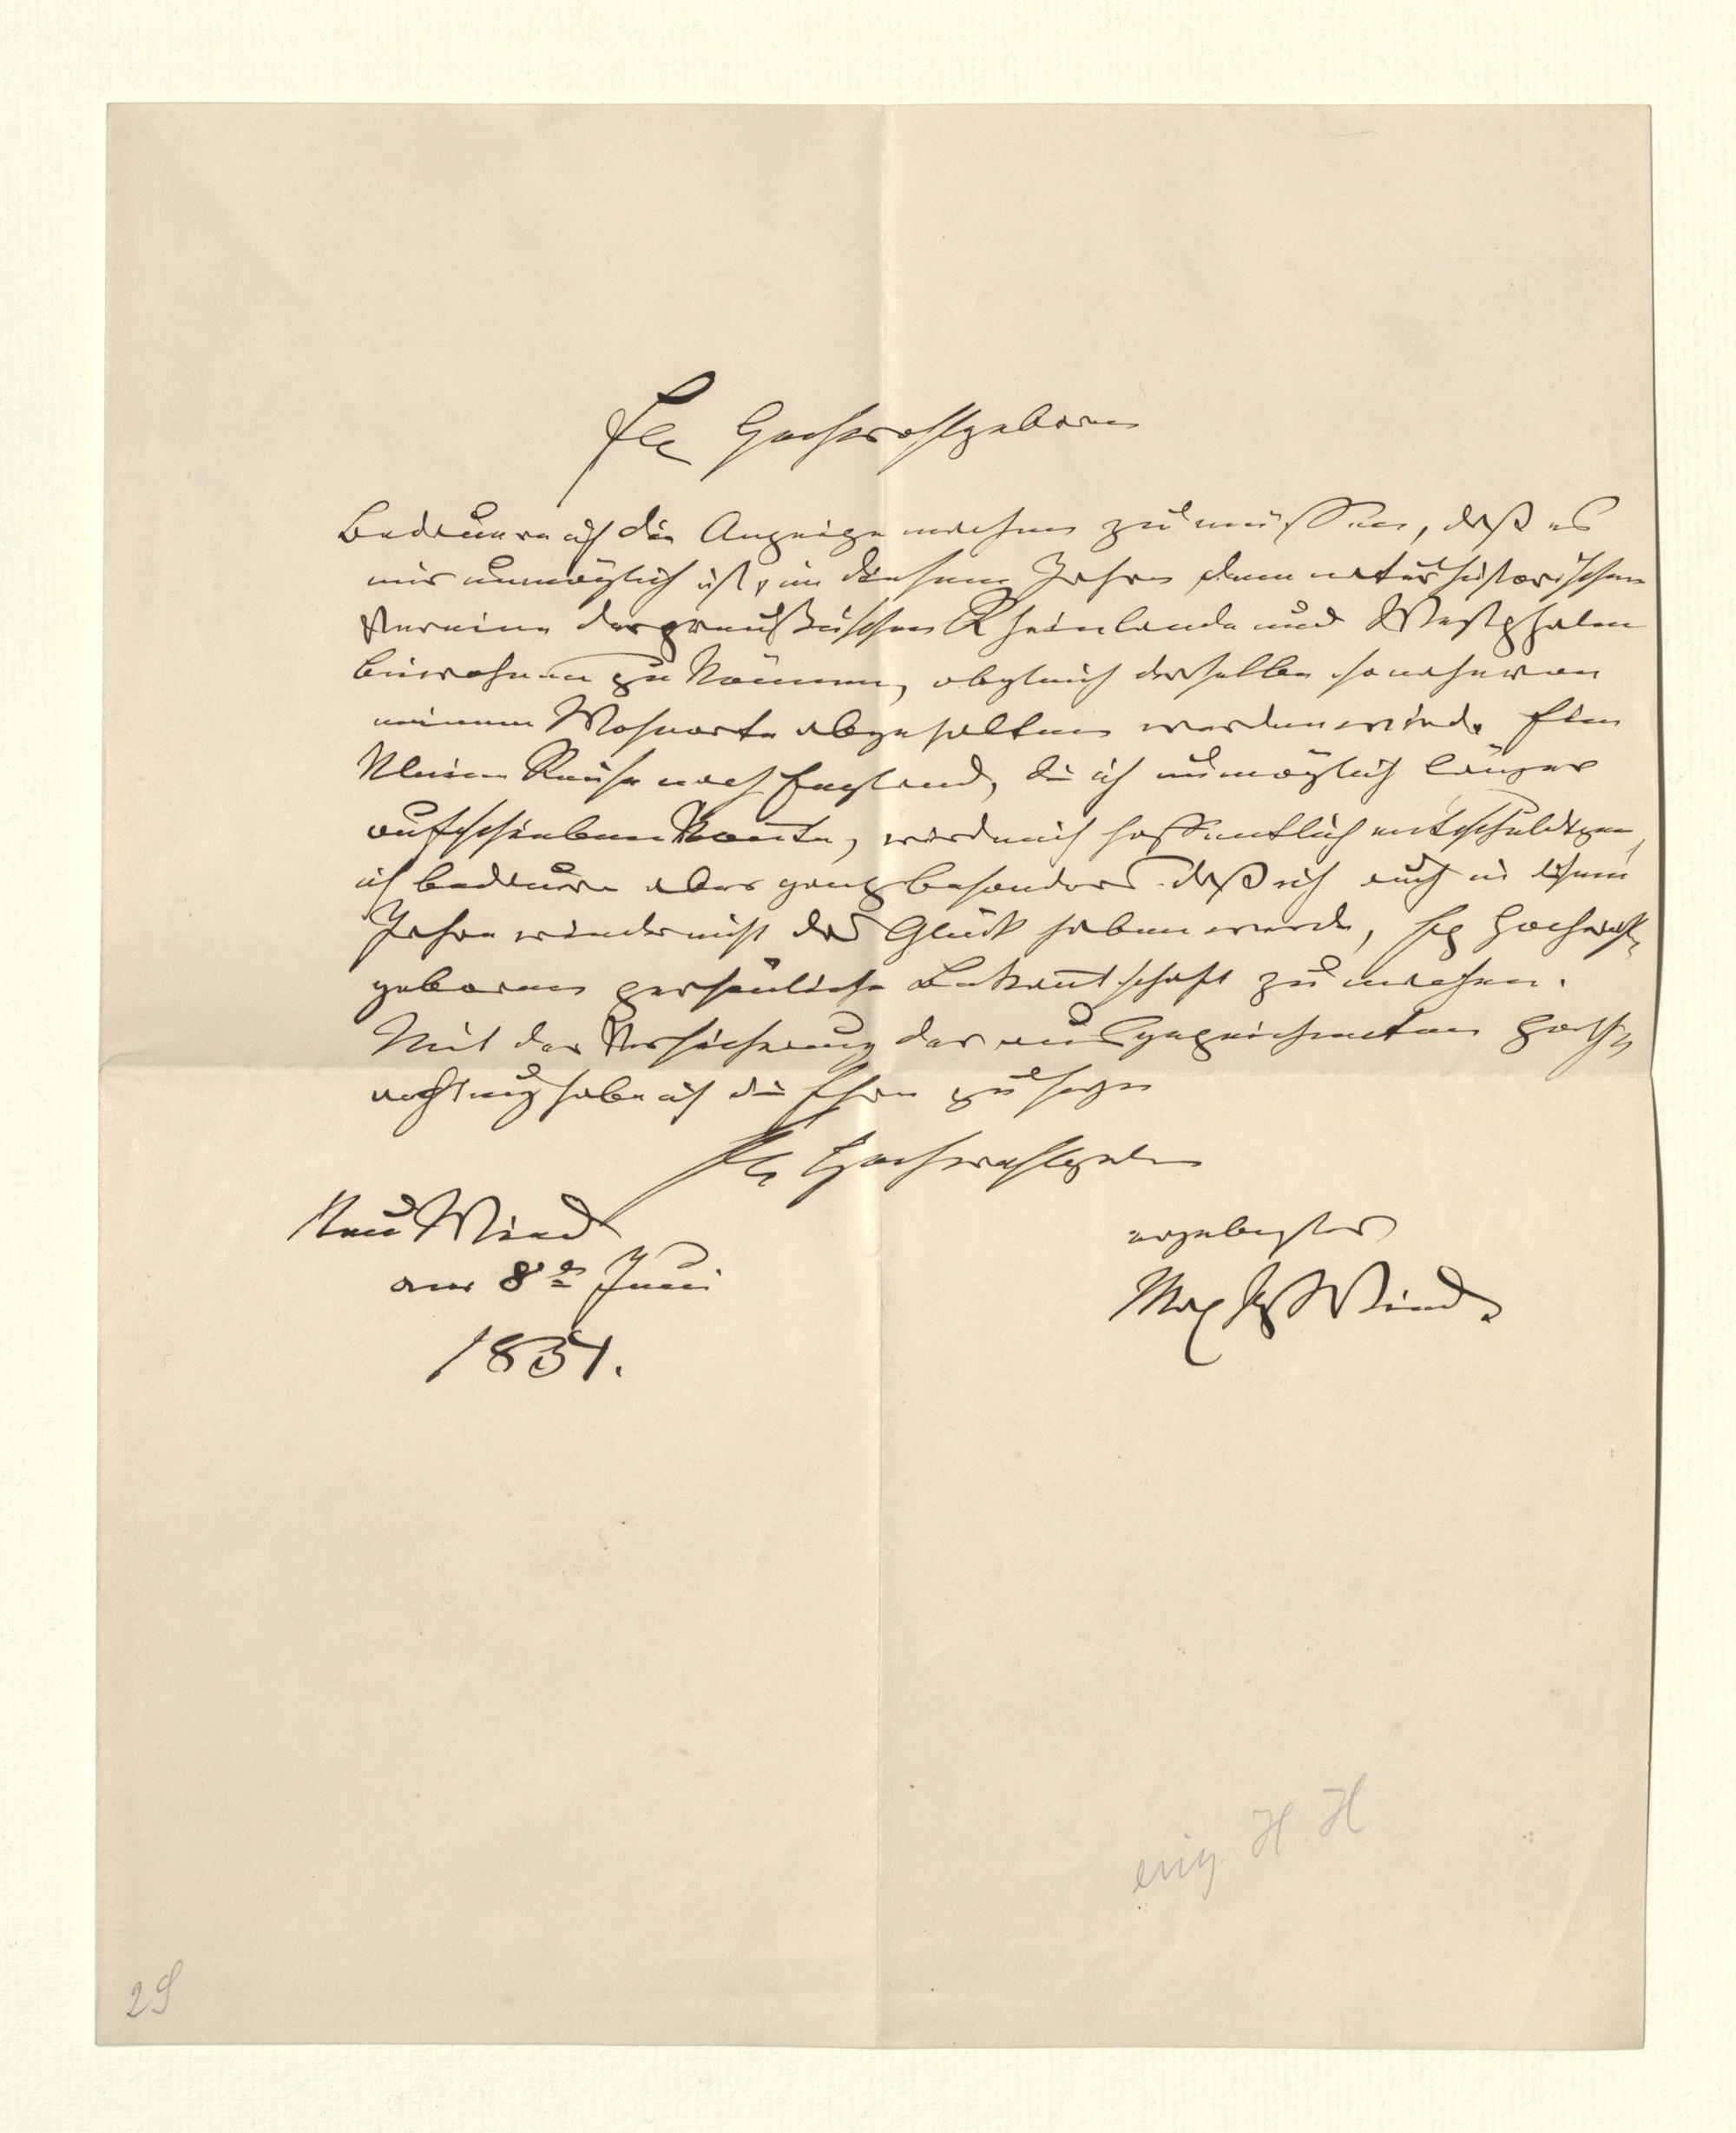 Ew Hochwohlgeboren
Bedauere ich die Anzeige machen zu müssen, daß es
mir unmöglich ist, in diesem Jahre dem naturhistorischen
Vereine der preußischen Rheinlande und Westphalen
beiwohnen zu können, obgleich derselbe so nahe von
meinem Wohnorte abgehalten werden wird. Eine
kleine Reise nach England, die ich unmöglich länger
aufschieben konnte, wird mich hoffentlich entschuldigen,
ich bedaure aber ganz besonders daß ich auch in diesem
Jahre wieder nicht das Glück haben werde, Ew Hochwohl-
geboren persönliche Bekantschaft zu machen.
Mit der Versicherung der ausgezeichneten Hoch-
achtung habe ich die Ehre zu seyn
Ew Hochwohlgeb
Neu Wied
am 8ten Juni
1851.
ergebenster
Max Wied.
eig. H. H
29